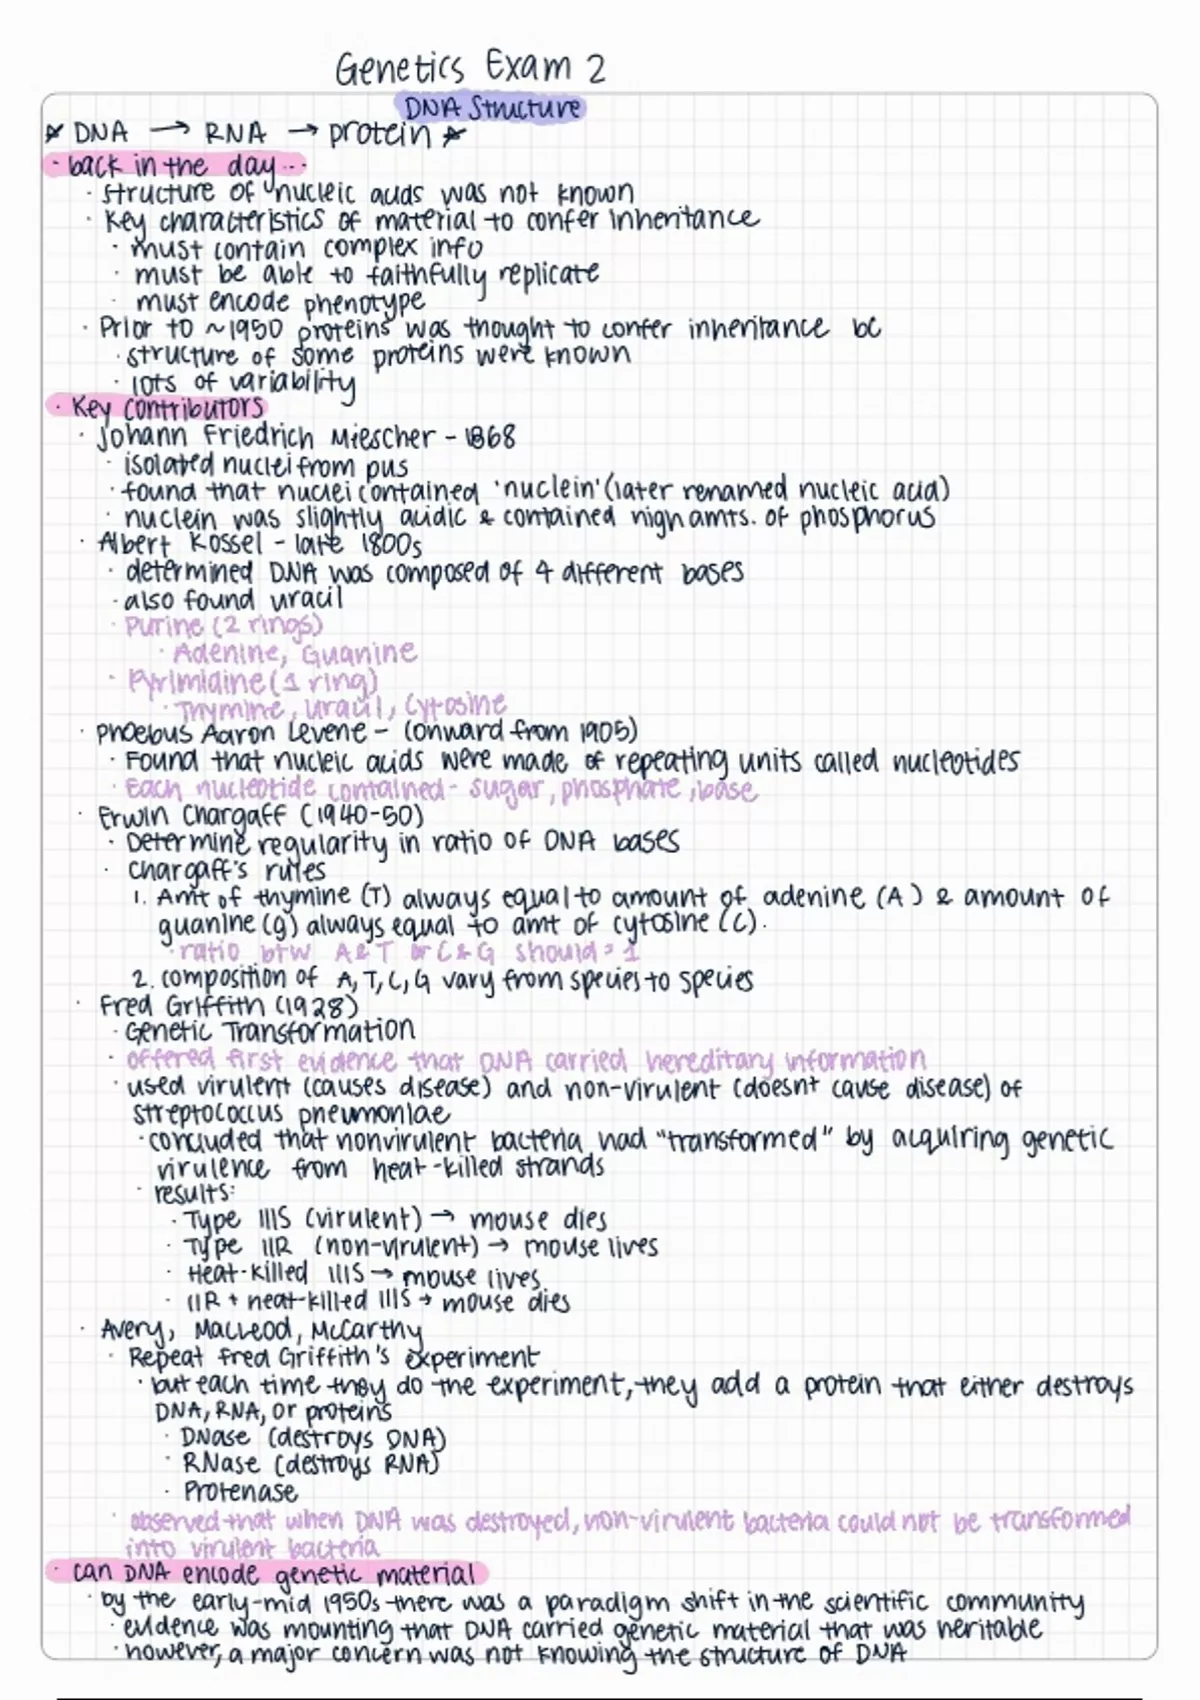 Genetics Exam 2
DNA Structure
* DNA → RNA → protein *
· back in the day...
· structure of nucleic acids was not known
· Key characteristics of material to confer inheritance
· must contain complex info
· must be able to faithfully replicate
· must encode phenotype
· Prior to ~1950 proteins was thought to confer inheritance bc
· structure of some proteins were known
· lots of variability
· Key contributors
· Johann Friedrich Miescher - 1868
· isolated nuclei from pus
· found that nuclei contained 'nuclein' (later renamed nucleic acid)
· nuclein was slightly acidic & contained high amts. of phosphorus
· Albert Kossel - late 1800s
· determined DNA was composed of 4 different bases
· also found uracil
· Purine (2 rings)
· Adenine, Guanine
· Pyrimidine (1 ring)
· Thymine, uracil, Cytosine
· Phoebus Aaron Levene - (onward from 1905)
· Found that nucleic acids were made of repeating units called nucleotides
· Each nucleotide contained - sugar, phosphate, base
· Erwin Chargaff (1940-50)
· Determine regularity in ratio of DNA bases
· Chargaff's rules
1. Amt of thymine (T) always equal to amount of adenine (A) & amount of
guanine (g) always equal to amt of cytosine (c).
· ratio btw A&T or C&G should = 1
2. composition of A, T, C, G vary from species to species
· Fred Griffith (1928)
· Genetic Transformation
· offered first evidence that DNA carried hereditary information
· used virulent (causes disease) and non-virulent (doesnt cause disease) of
streptococcus pneumoniae
· concluded that nonvirulent bacteria had "transformed" by acquiring genetic
virulence from heat-killed strands
· results:
· Type IIIS (virulent) → mouse dies
· Type IIR (non-virulent) → mouse lives
· Heat-killed IIIS → mouse lives
· IIR + heat-killed IIIS → mouse dies
· Avery, MacLeod, McCarthy
· Repeat Fred Griffith's experiment
· but each time they do the experiment, they add a protein that either destroys
DNA, RNA, or proteins
· DNase (destroys DNA)
· RNase (destroys RNA)
· Protenase
· observed that when DNA was destroyed, non-virulent bacteria could not be transformed
into virulent bacteria
· can DNA encode genetic material
· by the early-mid 1950s there was a paradigm shift in the scientific community
· evidence was mounting that DNA carried genetic material that was heritable
· however, a major concern was not knowing the structure of DNA